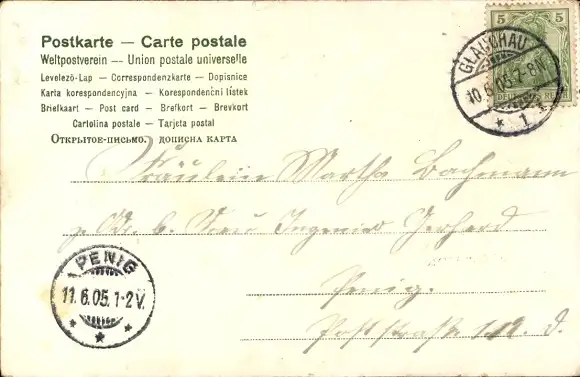 Postkarte — Carte postale
Weltpostverein — Union postale universelle
Levelezö-Lap — Correspondenzkarte — Dopisnice
Karta korespondencyjna — Korespondenční lístek
Briefkaart — Post card — Brefkort — Brevkort
Cartolina postale — Tarjeta postal
Открытое-письмо. дописна карта
5 5
DEUTSCHES REICH
GLAUCHAU
10.6.05.7-8N.
* 1 1
Fräulein Martha Bachmann
z. Adr. b. Frau Ingenieur Gerhard
Penig.
Poststraße
PENIG
11.6.05.1-2V.
* * *